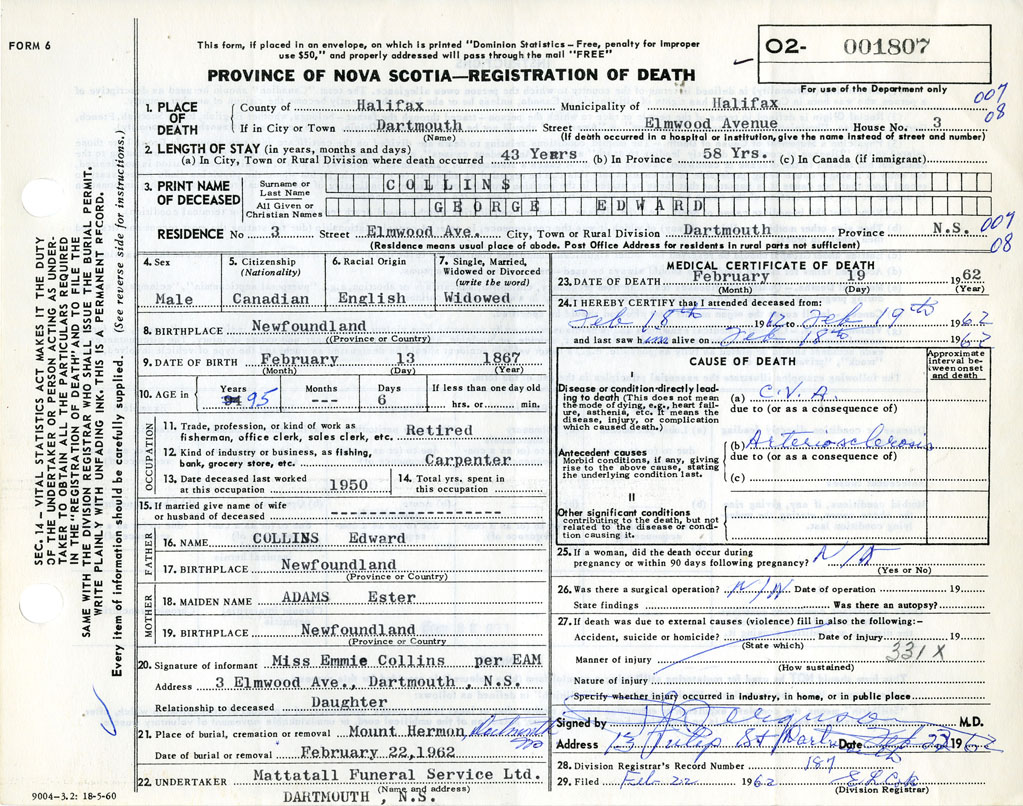 FORM 6
This form, if placed in an envelope, on which is printed "Dominion Statistics – Free, penalty for improper
use $50," and properly addressed will pass through the mail "FREE"
PROVINCE OF NOVA SCOTIA—REGISTRATION OF DEATH
O2- 001807
For use of the Department only
007
08
1. PLACE OF DEATH
County of Halifax Municipality of Halifax
If in City or Town Dartmouth Street Elmwood Avenue House No. 3
(Name) (If death occurred in a hospital or institution, give the name instead of street and number)
2. LENGTH OF STAY (in years, months and days)
(a) In City, Town or Rural Division where death occurred 43 Years (b) In Province 58 Yrs. (c) In Canada (if immigrant)
3. PRINT NAME OF DECEASED
Surname or Last Name COLLINS
All Given or Christian Names GEORGE EDWARD
RESIDENCE No 3 Street Elmwood Ave. City, Town or Rural Division Dartmouth Province N.S.
007
08
(Residence means usual place of abode. Post Office Address for residents in rural parts not sufficient)
4. Sex
Male
5. Citizenship (Nationality)
Canadian
6. Racial Origin
English
7. Single, Married, Widowed or Divorced (write the word)
Widowed
8. BIRTHPLACE Newfoundland
(Province or Country)
9. DATE OF BIRTH February 13 1867
(Month) (Day) (Year)
10. AGE in Years 94 95 Months --- Days 6 If less than one day old hrs. or min.
OCCUPATION
11. Trade, profession, or kind of work as fisherman, office clerk, sales clerk, etc. Retired
12. Kind of industry or business, as fishing, bank, grocery store, etc. Carpenter
13. Date deceased last worked at this occupation 1950
14. Total yrs. spent in this occupation
15. If married give name of wife or husband of deceased ----------------
FATHER
16. NAME COLLINS Edward
17. BIRTHPLACE Newfoundland
(Province or Country)
MOTHER
18. MAIDEN NAME ADAMS Ester
19. BIRTHPLACE Newfoundland
(Province or Country
20. Signature of informant Miss Emmie Collins per EAM
Address 3 Elmwood Ave., Dartmouth, N.S.
Relationship to deceased Daughter
21. Place of burial, cremation or removal Mount Hermon, Dartmouth
Date of burial or removal February 22, 1962
22. UNDERTAKER Mattatall Funeral Service Ltd.
(Name and address)
DARTMOUTH, N.S.
9004-3.2: 18-5-60
MEDICAL CERTIFICATE OF DEATH
23. DATE OF DEATH February 19 1962
(Month) (Day) (Year)
24. I HEREBY CERTIFY that I attended deceased from:
Feb 18th 1962 to Feb 19th 1962
and last saw him alive on Feb 18th 1962
CAUSE OF DEATH
Approximate interval between onset and death
I
Disease or condition directly leading to death (This does not mean the mode of dying, e.g., heart failure, asthenia, etc. It means the disease, injury, or complication which caused death.)
(a) C.V.A.
due to (or as a consequence of)
Antecedent causes
Morbid conditions, if any, giving rise to the above cause, stating the underlying condition last.
(b) Arteriosclerosis
due to (or as a consequence of)
(c)
II
Other significant conditions contributing to the death, but not related to the disease or condition causing it.
25. If a woman, did the death occur during pregnancy or within 90 days following pregnancy? N/A
(Yes or No)
26. Was there a surgical operation? N/A Date of operation 19
State findings Was there an autopsy?
27. If death was due to external causes (violence) fill in also the following:–
Accident, suicide or homicide? Date of injury 19
(State which)
Manner of injury 331X
(How sustained)
Nature of injury
Specify whether injury occurred in industry, in home, or in public place
Signed by Ferguson M.D.
Address 13 Tulip St Dartmouth Date Feb 23 1962
28. Division Registrar's Record Number 187
29. Filed Feb 22 1962
(Division Registrar)
SEC. 14 – VITAL STATISTICS ACT MAKES IT THE DUTY
OF THE UNDERTAKER OR PERSON ACTING AS UNDER-
TAKER TO OBTAIN ALL THE PARTICULARS REQUIRED
IN THE "REGISTRATION OF DEATH" AND TO FILE THE
SAME WITH THE DIVISION REGISTRAR WHO SHALL ISSUE THE BURIAL PERMIT.
WRITE PLAINLY WITH UNFADING INK. THIS IS A PERMANENT RECORD.
Every item of information should be carefully supplied. (See reverse side for instructions.)